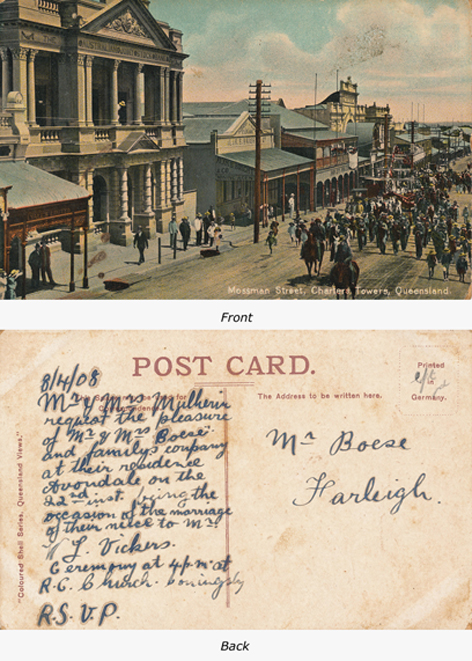 AUSTRALIAN JOINT STOCK BANK
Mossman Street, Charters Towers, Queensland.
Front
POST CARD.
8/4/08
Mr & Mrs Mulherin
request the pleasure
of Mr & Mrs Boese
and family's company
at their residence
Avondale on the
22nd inst. being the
occasion of the marriage
of their niece to Mr
J. Vickers.
Ceremony at 4 p.m. at
R.C. Church.
R.S.V.P.
"Coloured Shell Series, Queensland Views."
The Address to be written here.
Printed
in
Germany.
Mr Boese
Farleigh.
Back